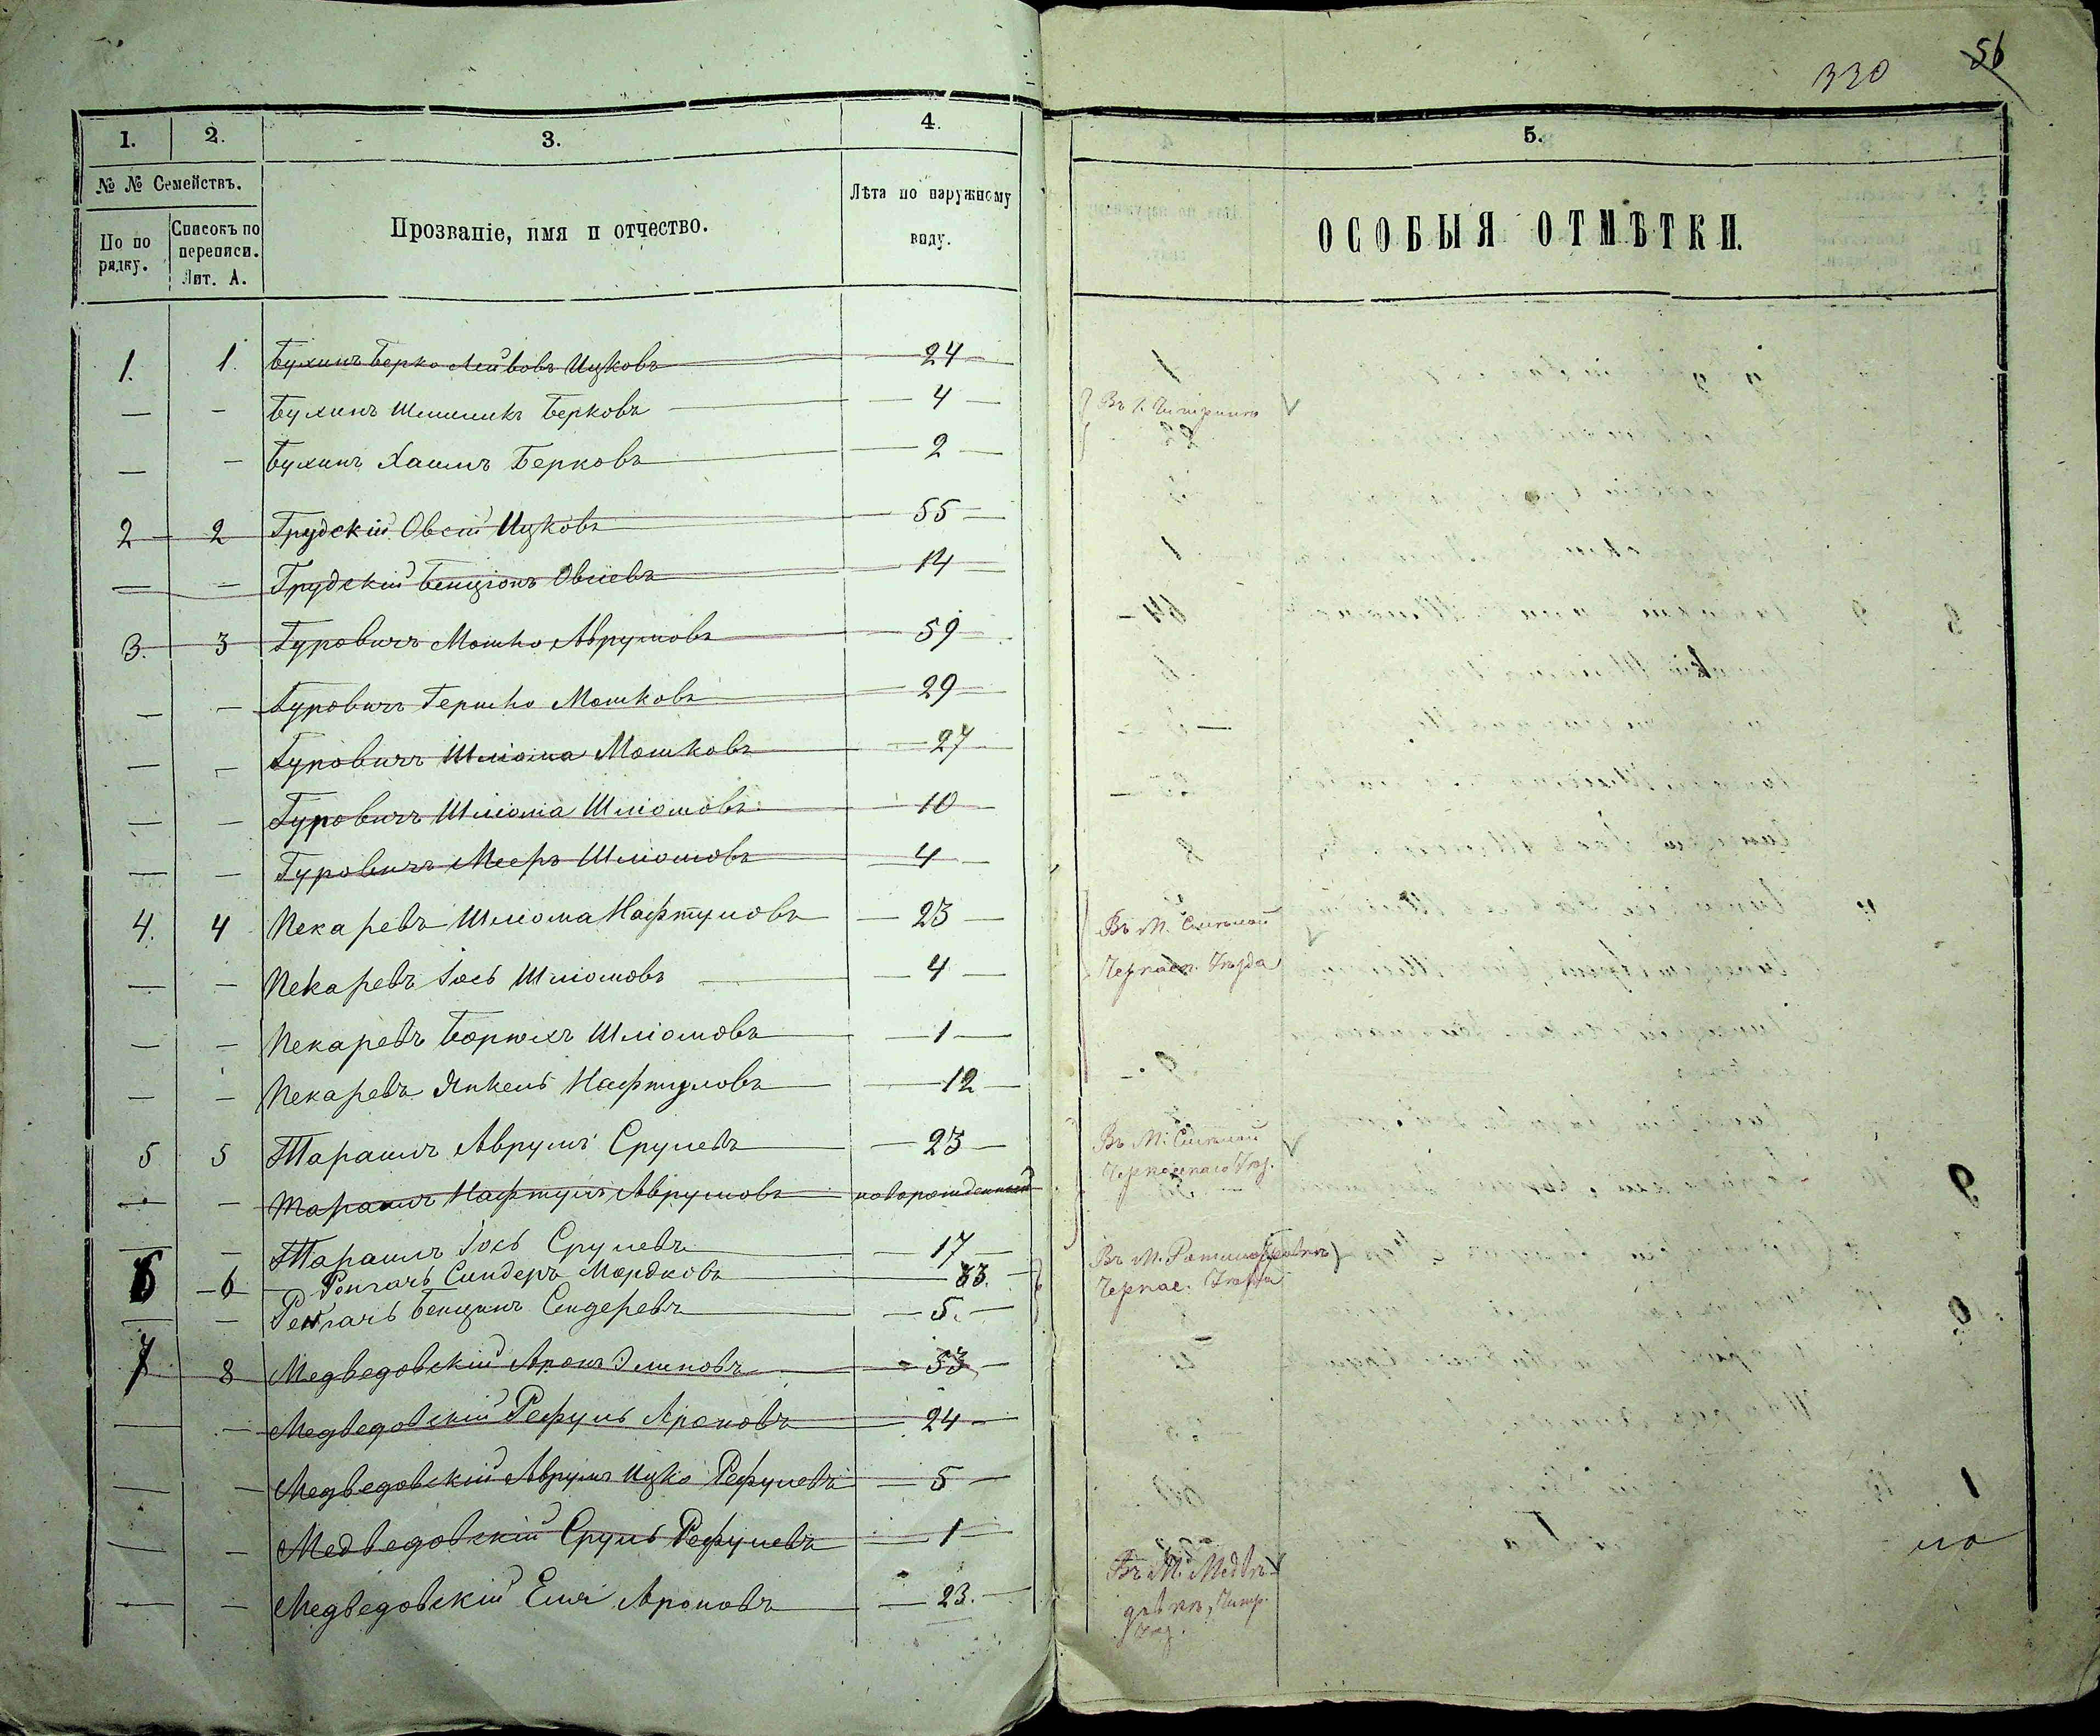 330 56
1. 2. 3. 4. 5.
№ № Семействъ.
По порядку. Списокъ по переписи. Лит. А.
Прозваніе, имя и отчество.
Лѣта по наружному виду.
ОСОБЫЯ ОТМѢТКИ.
1. 1. Бухинъ Берко Лейбовъ Ицковъ 24
— - Бухинъ Шлиомъ Берковъ — 4 —
— - Бухинъ Хаимъ Берковъ — 2 —
2 2 Грудскій Овсій Ицковъ 55
— - Грудскій Бенціонъ Овсіевъ 14
3. 3 Гуровичъ Мошко Аврумовъ 59
— - Гуровичъ Гершко Мошковъ 29
— - Гуровичъ Шліома Мошковъ 27
— - Гуровичъ Шліома Шліомовъ 10
— - Гуровичъ Мееръ Шліомовъ 4
4. 4 Пекаревъ Шліома Нафтуловъ 23 Въ М. Смѣлой
— - Пекаревъ Іось Шліомовъ — 4 — Черкасск. Уѣзда
— - Пекаревъ Борюхъ Шліомовъ — 1 —
— - Пекаревъ Янкель Нафтуловъ — 12 —
5 5 Тарашъ Аврумъ Срулевъ — 23 — Въ М. Смѣлой
— - Тарашъ Нафтулъ Аврумовъ новорожденный Черкасскаго Уѣз.
— - Тарашъ Іось Срулевъ 17
6 6 Синдеръ Мордковъ 33. Черкас. Уѣзда
— - Бенціинъ Сендеревъ — 5. —
7 8 Медведовскій Аронъ 53
— - Медведовскій Рефуль Ароновъ 24
— - Медведовскій Аврумъ Ицко Рефулевъ — 5 —
— - Медведовскій Сруль Рефулевъ — 1 —
— - Медведовскій Еля Ароновъ — 23. — Въ М. Медвѣ-
дѣвкѣ, Чигр.
Уѣз.